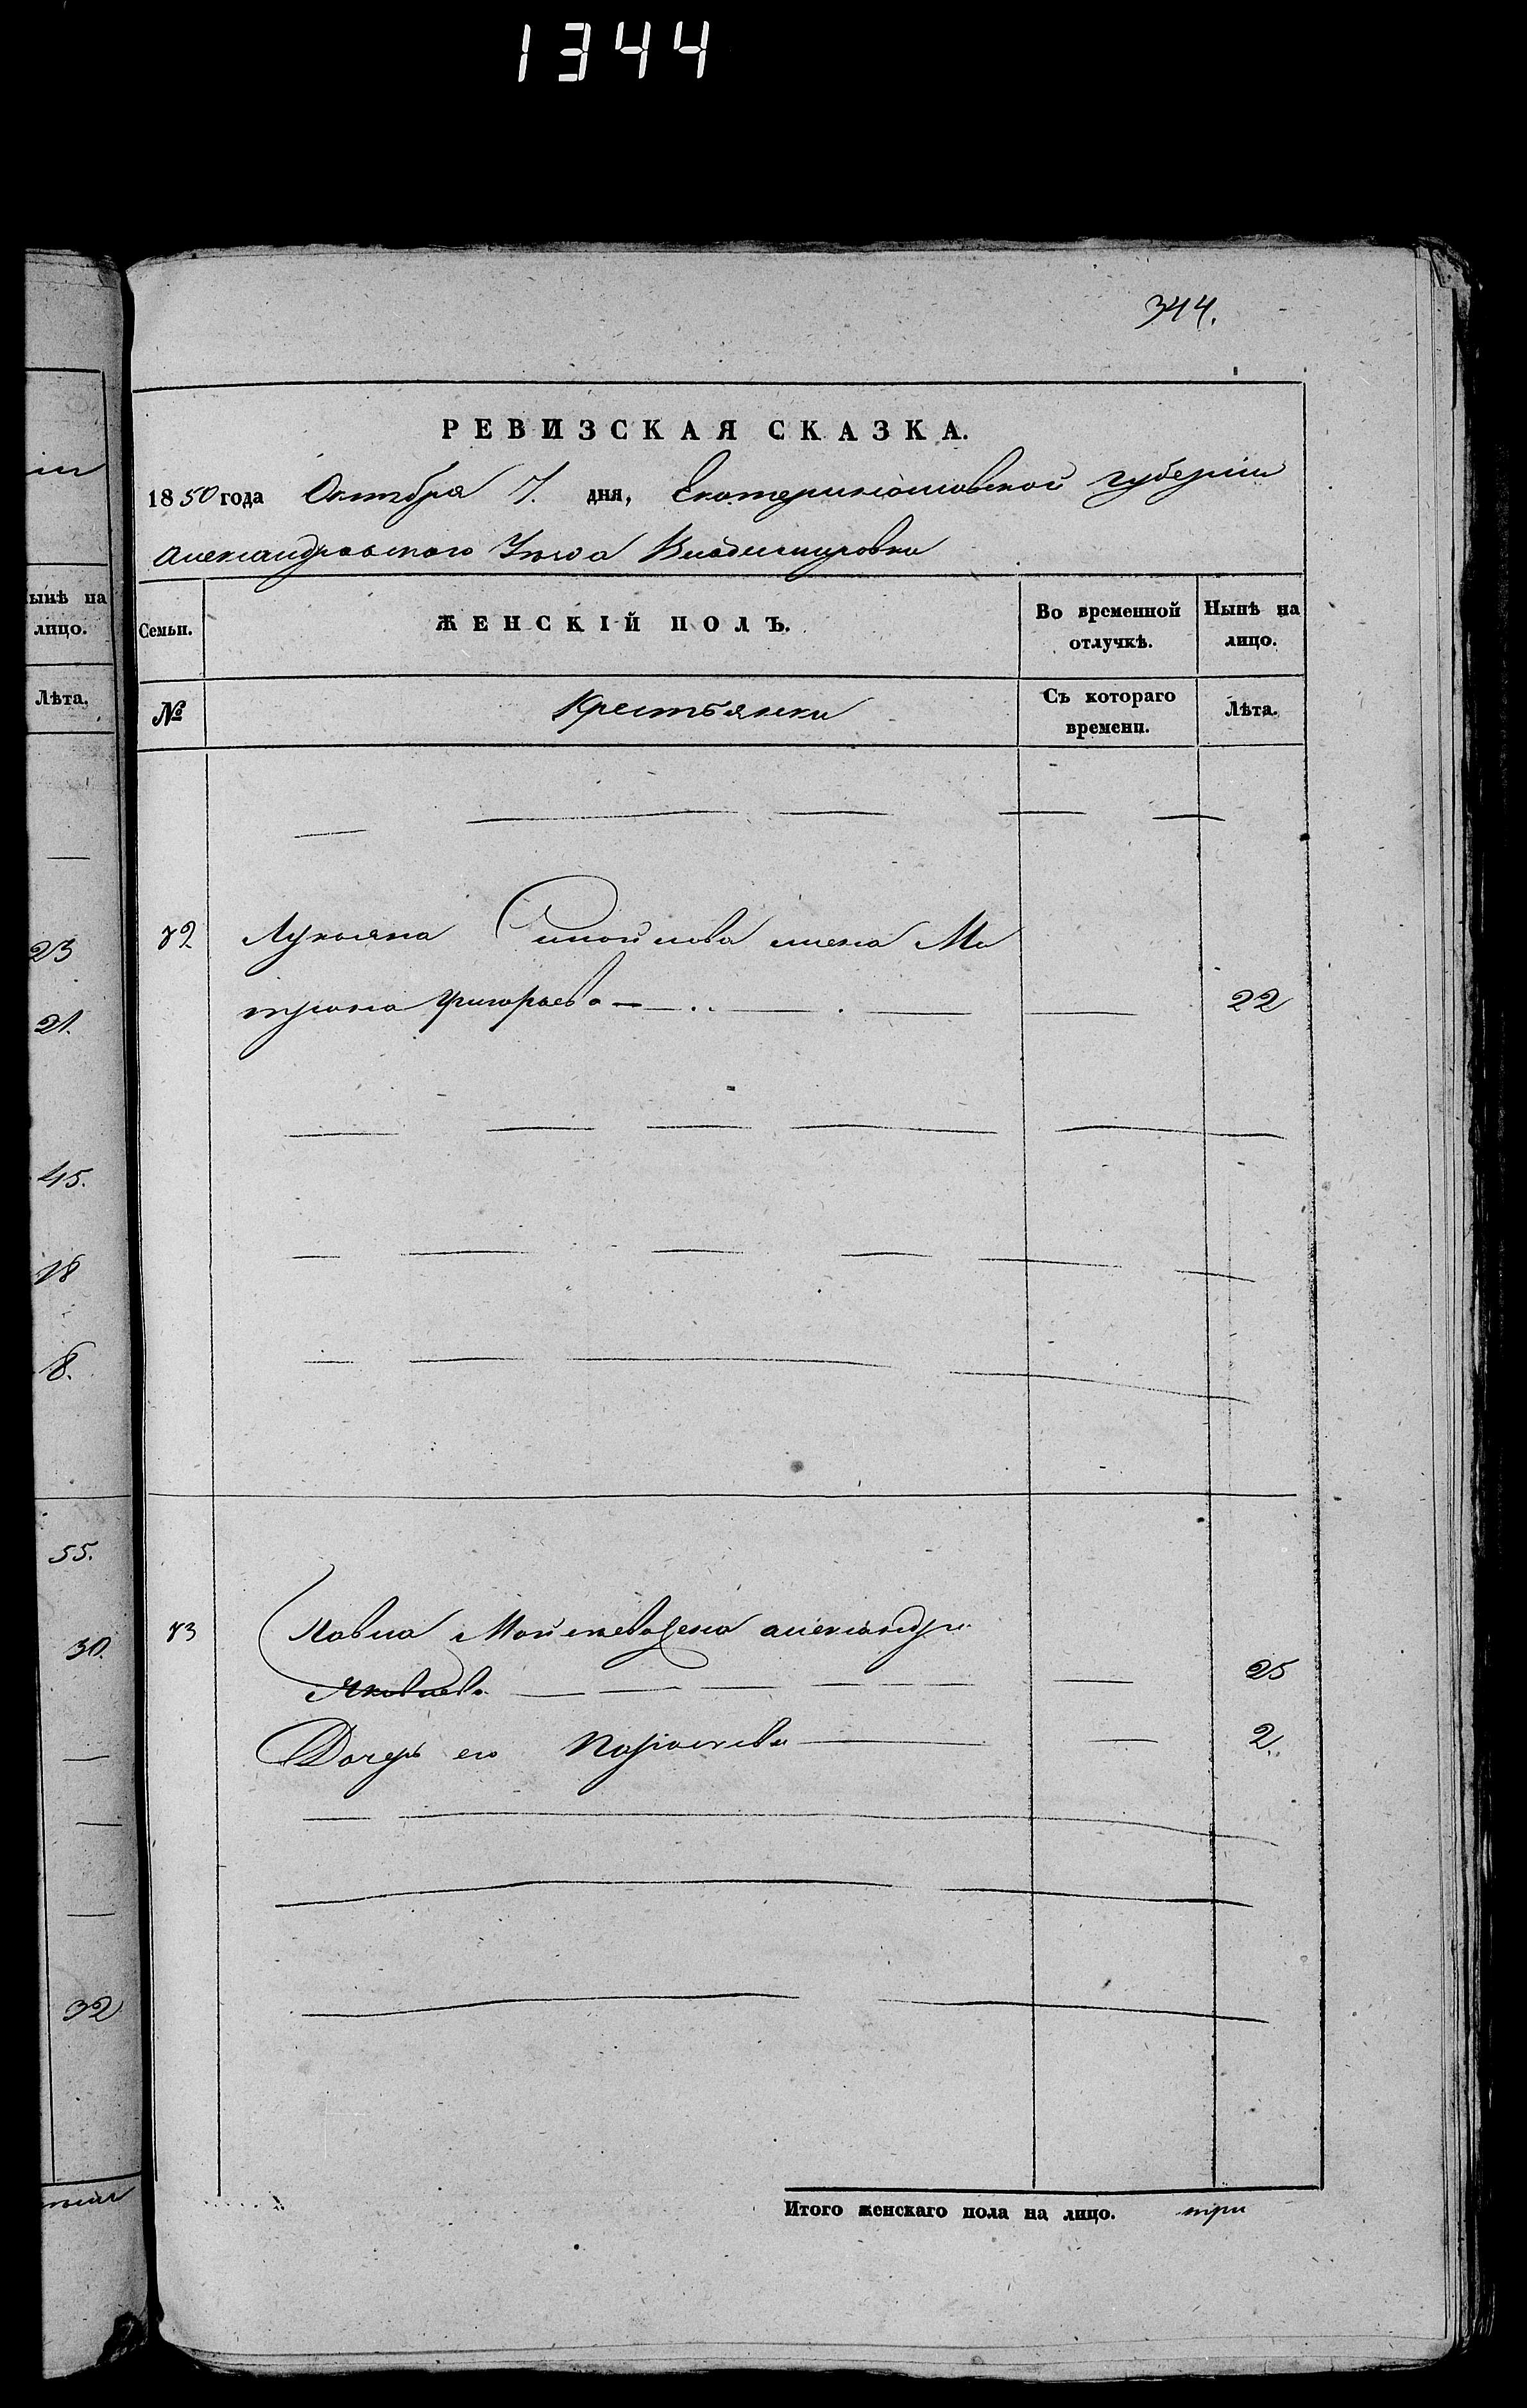 1344
344.
ін
ынѣ на
лицо.
Лѣта.
23
21.
45.
18
8.
55.
30.
32
РЕВИЗСКАЯ СКАЗКА.
1850 года Октября 7. дня, Екатеринославской губерніи
Александровского Уезда Владимировки
Семьи.
ЖЕНСКІЙ ПОЛЪ.
Во временной отлучкѣ.
Нынѣ на лицо.
№
Крестьянки
Съ котораго времени.
Лѣта.
72 Лукьяна жена Ма
трона Григорьева 22
73 Павла Моисеева жена Александра
Яковлева 25
Дочерь его Параскева 2.
Итого женскаго пола на лицо. три